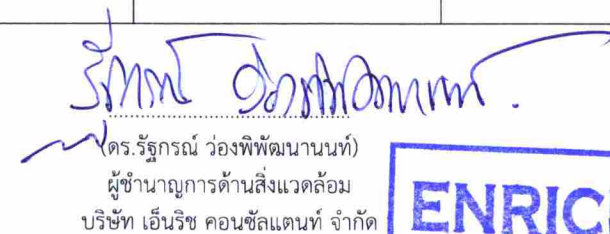 (ดร.รัฐกรณ์ ว่องพิพัฒนานนท์)
ผู้ชำนาญการด้านสิ่งแวดล้อม
บริษัท เอ็นริช คอนซัลแตนท์ จำกัด
ENRIC